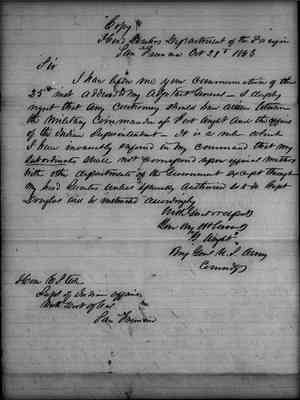 Copy
Head Quarters Department of the Pacific
San Francisco Oct 29th 1863
Sir
I have before me your communication of the
25th inst addressed to my Adjutant General - I deeply
regret that any Controversy should have arisen between
the Military Commander of Fort Wright and the officers
of the Indian Department - It is a rule which
I have invariably enforced in my Command that my
subordinates shall not correspond upon official matters
with other departments of the Government except through
my Head Quarters unless specially authorized to do so Capt
Douglas will be instructed accordingly
With great respect
Your Obt Servant
G. Wright
Brig Genl U. S. Army
Comndg
Hon
Supt of Indian Affairs
San Francisco